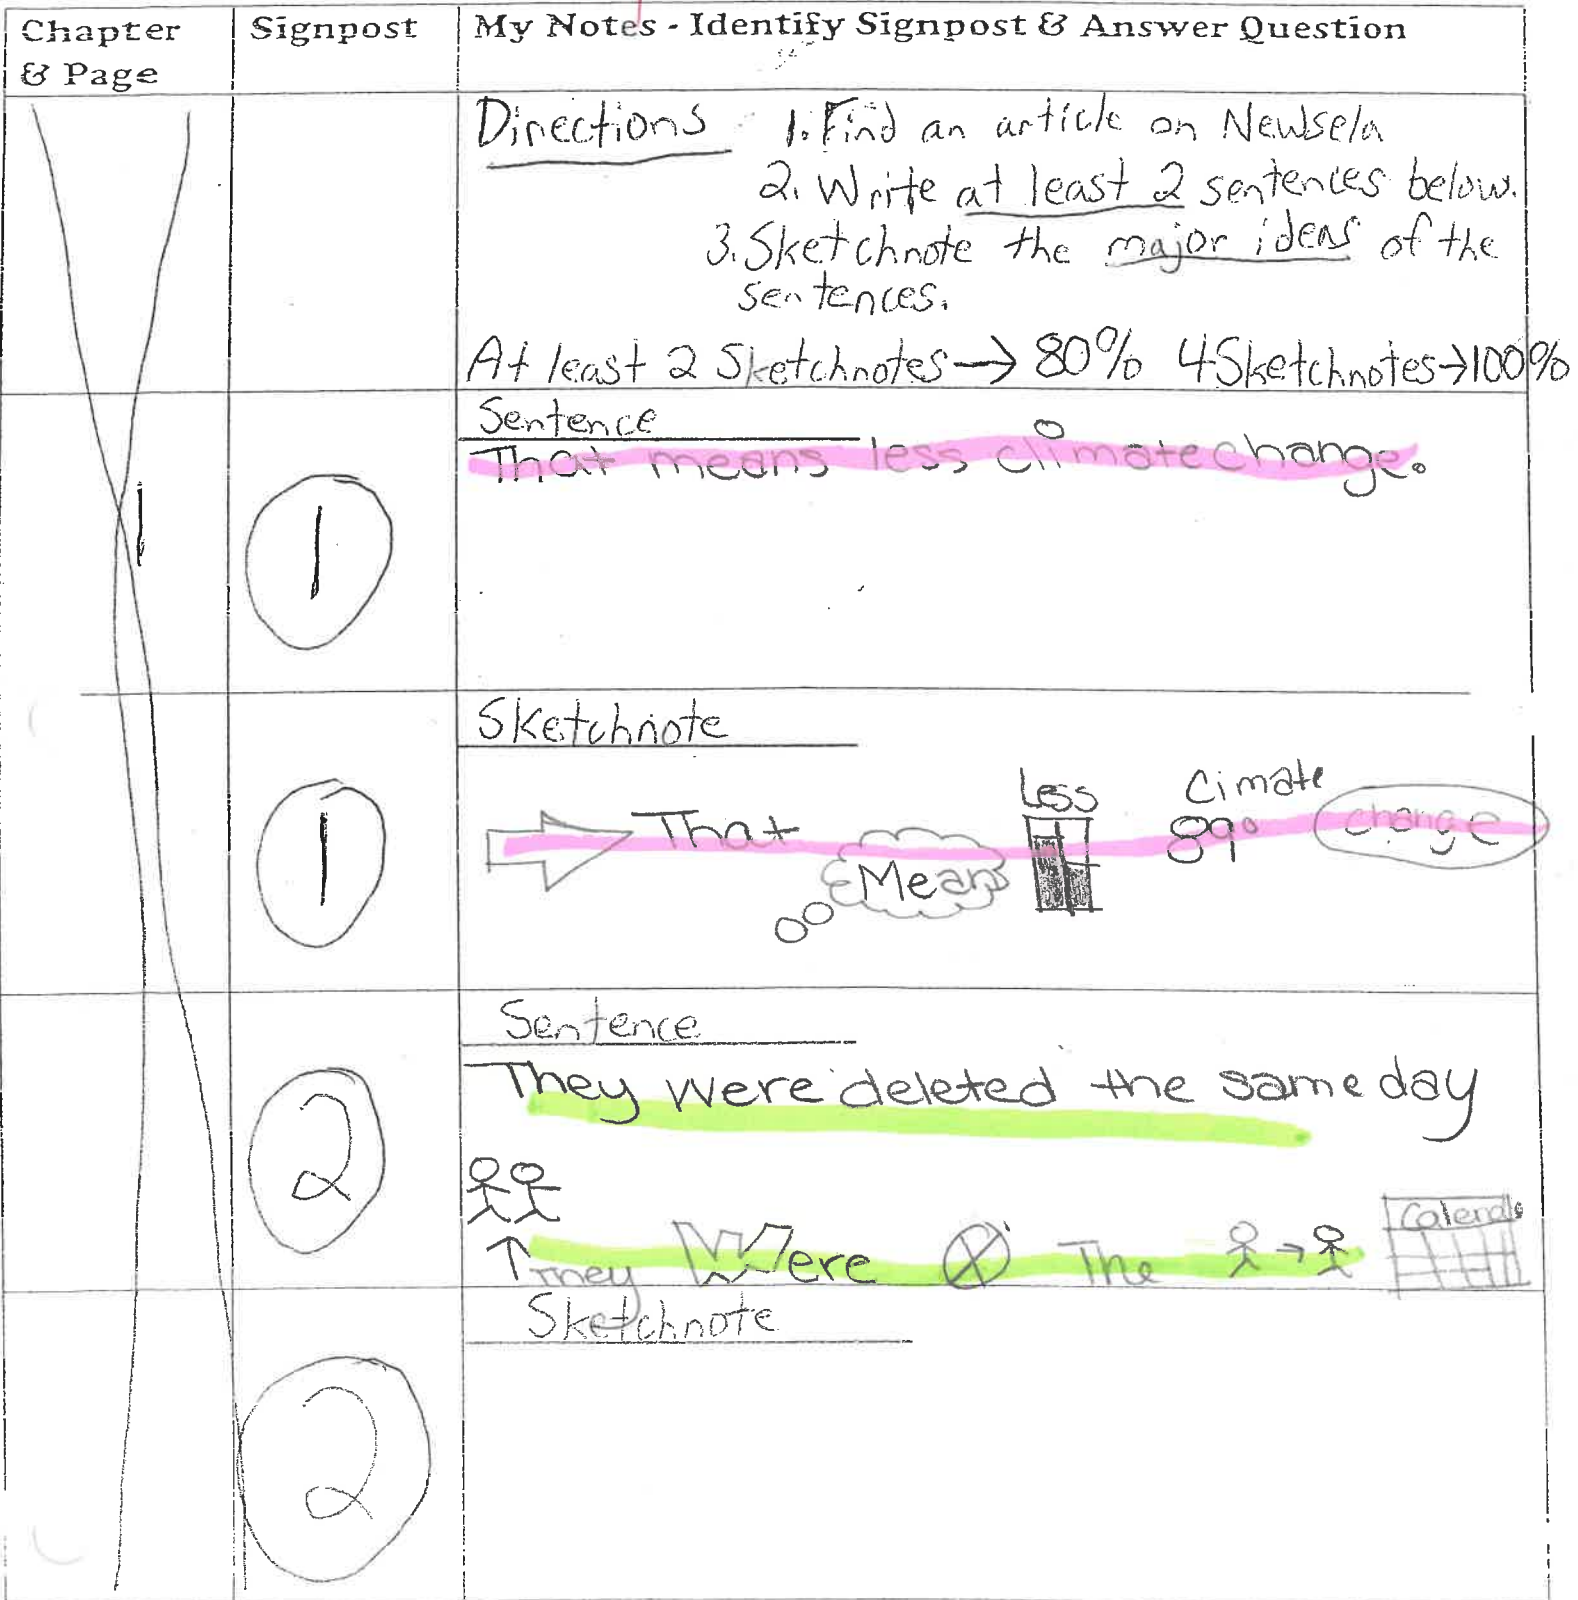 Chapter & Page
Signpost
My Notes - Identify Signpost & Answer Question
Directions 1. Find an article on Newsela
2. Write at least 2 sentences below.
3. Sketchnote the major ideas of the
sentences.
At least 2 Sketchnotes → 80% 4 Sketchnotes → 100%
Sentence
That means less climate change.
1
1
Sketchnote
Less
Cimate
That
89°
change
Means
1
Sentence
They were deleted the same day
2
Calenda
They Were The
Sketchnote
2